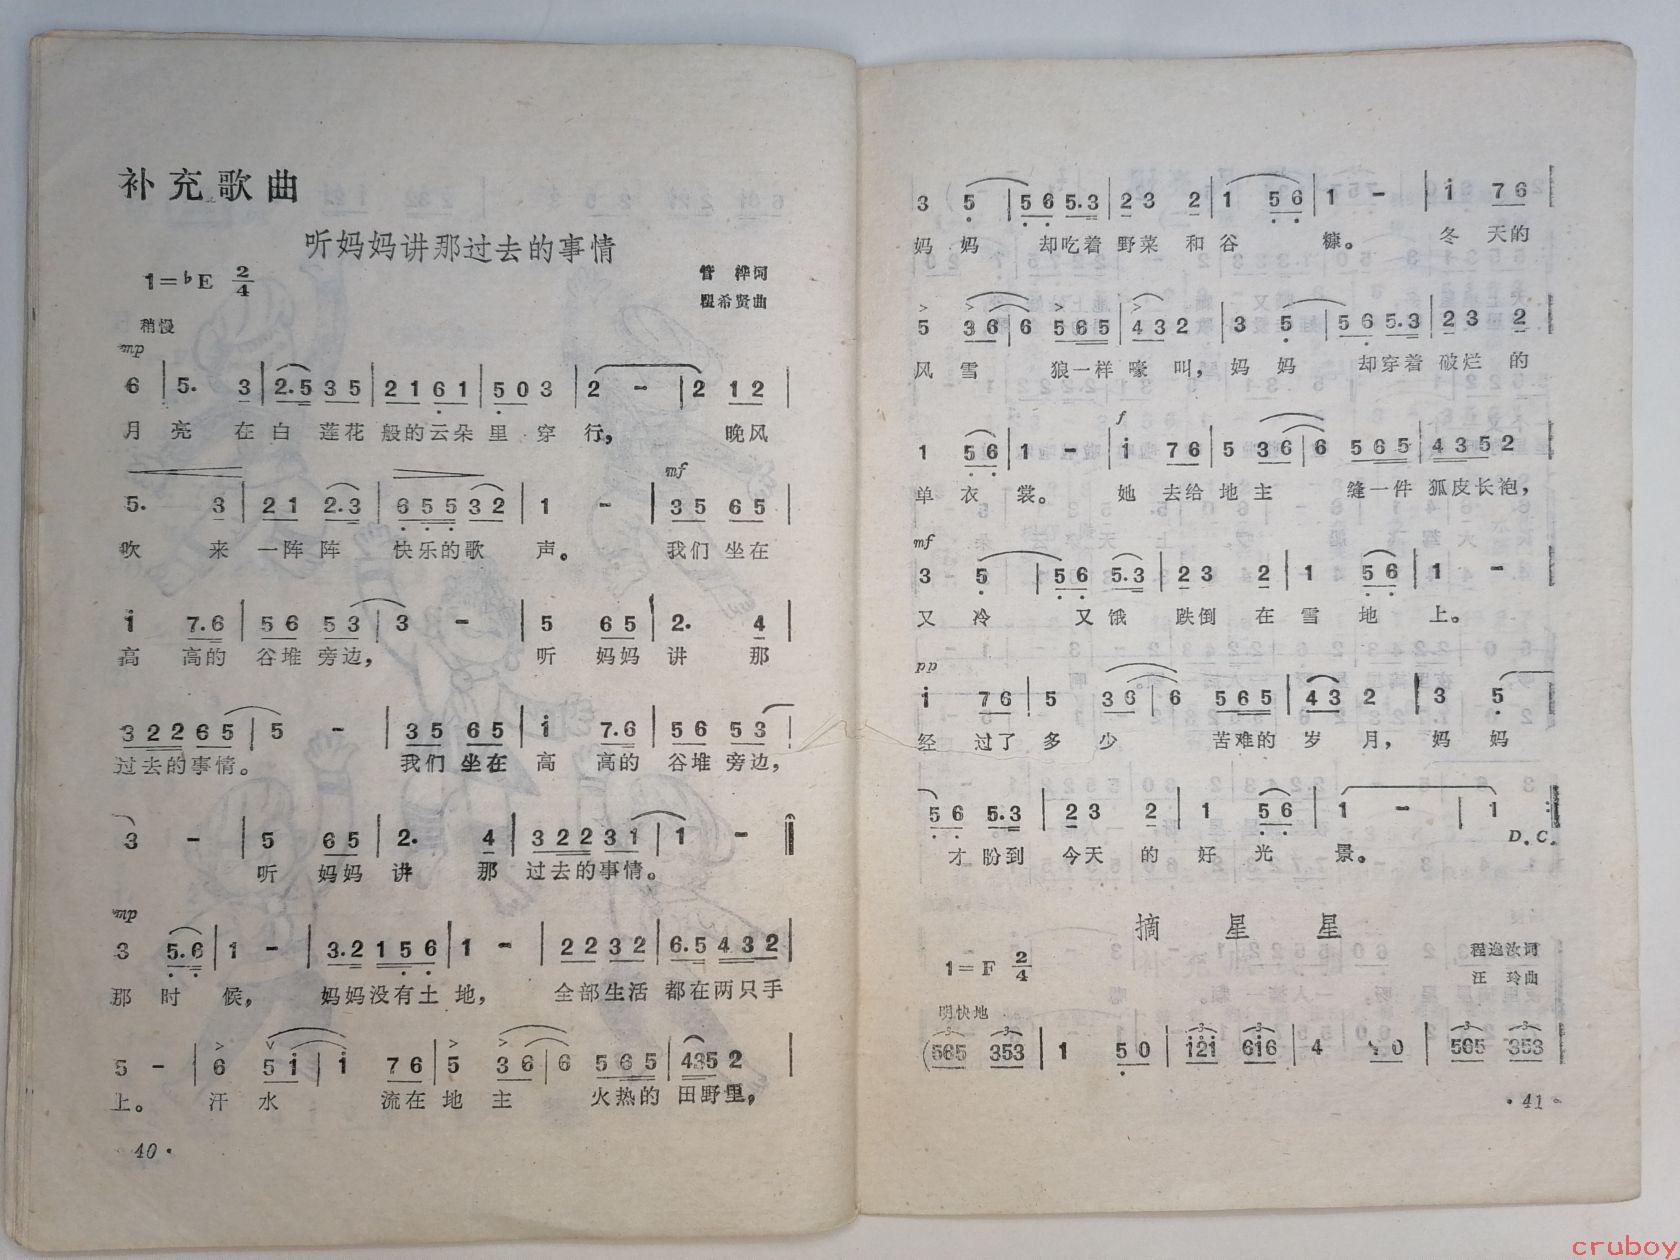 补充歌曲
听妈妈讲那过去的事情
1=♭E 2/4
管桦词
瞿希贤曲
稍慢
mp
6 | 5. 3 | 2.5 3 5 | 2 1 6 1 | 5 0 3 | 2 - | 2 1 2 |
月 亮 在 白 莲花 般的云朵 里 穿 行, 晚风
mf
5. 3 | 2 1 2.3 | 6 5 5 3 2 | 1 - | 3 5 6 5 |
吹 来 一阵 阵 快乐的歌 声。 我们 坐在
i 7.6 | 5 6 5 3 | 3 - | 5 6 5 | 2. 4 |
高 高的 谷堆 旁边, 听 妈妈 讲 那
3 2 2 6 5 | 5 - | 3 5 6 5 | i 7.6 | 5 6 5 3 |
过去的事情。 我们 坐在 高 高的 谷堆 旁边,
3 - | 5 6 5 | 2. 4 | 3 2 2 3 1 | 1 - ‖
听 妈妈 讲 那 过去的事情。
mp
3 5.6 | 1 - | 3.2 1 5 6 | 1 - | 2 2 3 2 | 6.5 4 3 2 |
那 时 候, 妈妈没有土 地, 全部生活 都在两只手
5 - | 6 5 i | i 7 6 | 5 3 6 | 6 5 6 5 | 4 3 5 2 |
上。 汗 水 流在 地 主 火热的 田野里,
40 ·
3 5 | 5 6 5.3 | 2 3 2 | 1 5 6 | 1 - | i 7 6 |
妈 妈 却吃着 野菜 和 谷 糠。 冬 天的
5 3 6 | 6 5 6 5 | 4 3 2 | 3 5 | 5 6 5.3 | 2 3 2 |
风 雪 狼一样 嚎 叫, 妈 妈 却穿着 破烂 的
f
1 5 6 | 1 - | i 7 6 | 5 3 6 | 6 5 6 5 | 4 3 5 2 |
单 衣 裳。 她 去给 地 主 缝一件 狐皮长袍,
mf
3 5 | 5 6 5.3 | 2 3 2 | 1 5 6 | 1 - |
又 冷 又 饿 跌倒 在 雪 地 上。
pp
i 7 6 | 5 3 6 | 6 5 6 5 | 4 3 2 | 3 5 |
经 过了 多 少 苦难的 岁 月, 妈 妈
5 6 5.3 | 2 3 2 | 1 5 6 | 1 - | 1 :‖
D.C.
才 盼到 今天 的 好 光 景。
摘星星
1=F 2/4
程逸汝词
汪玲曲
明快地
(565 353 | 1 5 0 | i2i 6i6 | 4 0 | 565 353 |
· 41 ·
cruboy